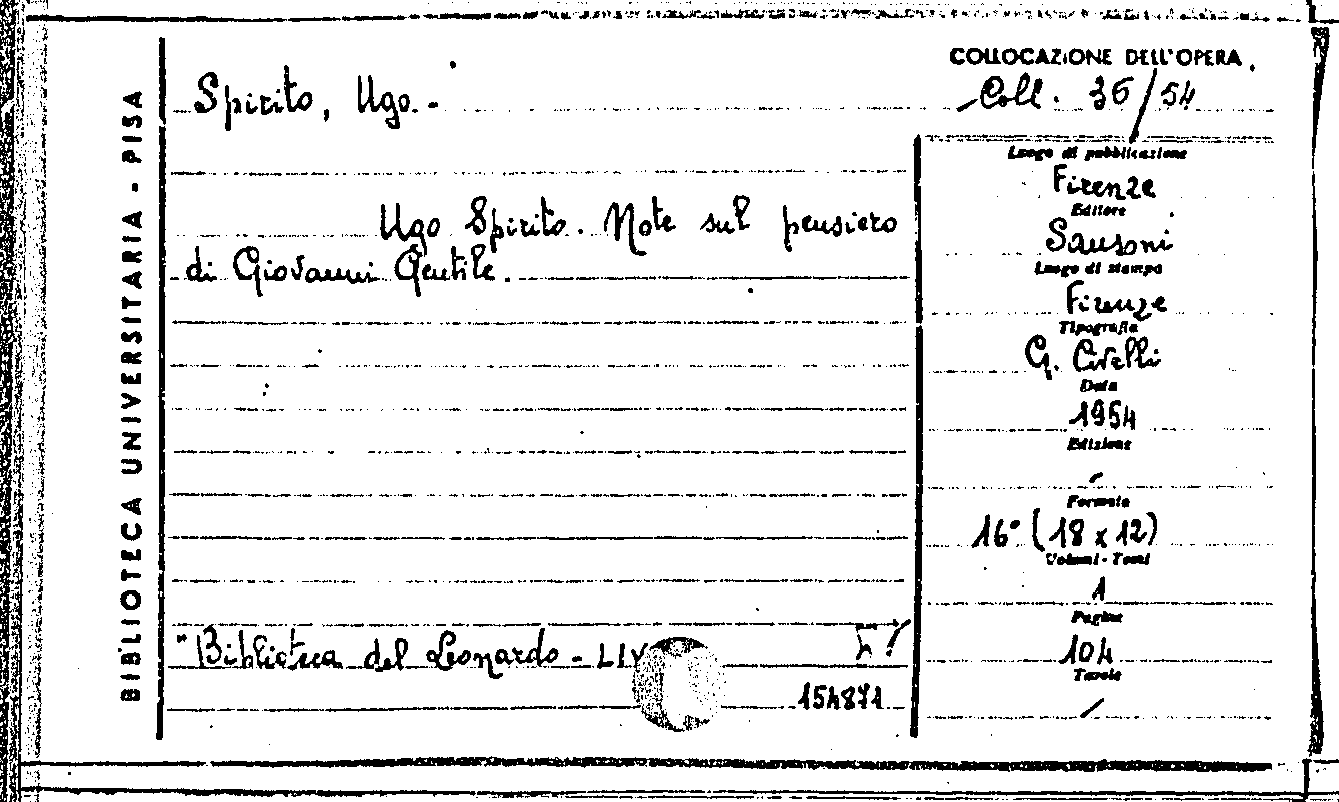 BIBLIOTECA UNIVERSITARIA - PISA
COLLOCAZIONE DELL'OPERA
Coll. 36/54
Spirito, Ugo. -
Ugo Spirito. Note sul pensiero
di Giovanni Gentile.
"Biblioteca del Leonardo - LIV
154871
Luogo di pubblicazione
Firenze
Editore
Sansoni
Luogo di stampa
Firenze
Tipografia
G. Civelli
Data
1954
Edizione
Formato
16° (18 x 12)
Volumi - Tomi
1
Pagine
104
Tavole
/